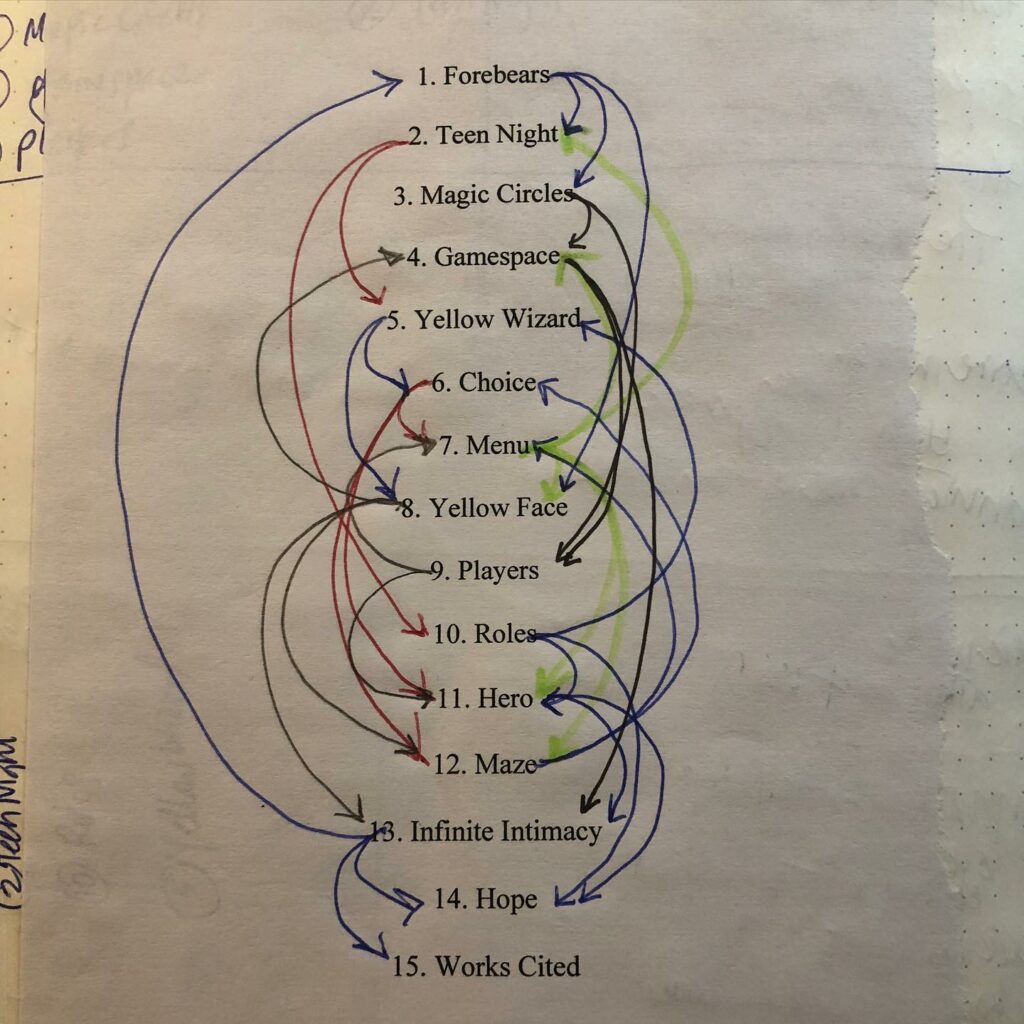 1. Forebears
2. Teen Night
3. Magic Circles
4. Gamespace
5. Yellow Wizard
6. Choice
7. Menu
8. Yellow Face
9. Players
10. Roles
11. Hero
12. Maze
13. Infinite Intimacy
14. Hope
15. Works Cited
(2) Teen Night